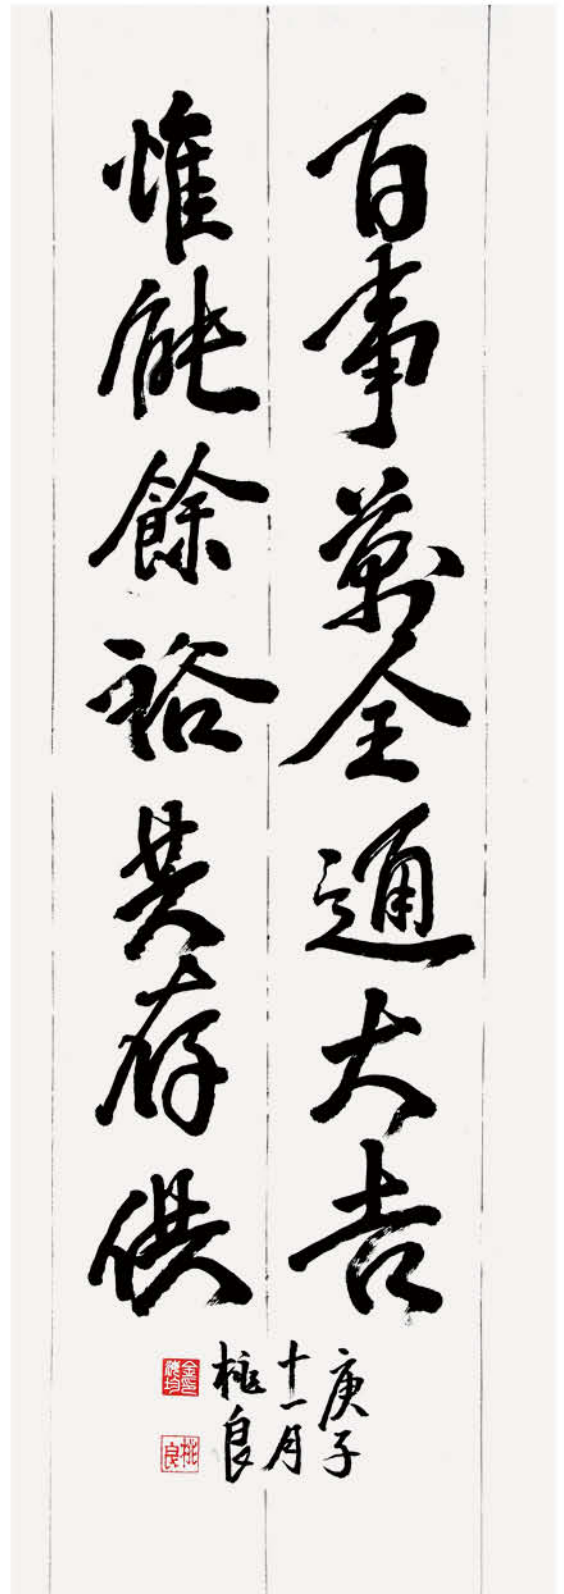 百事萬全通大吉
惟能餘裕共存供
庚子
十一月
桃良
金
均
桃良